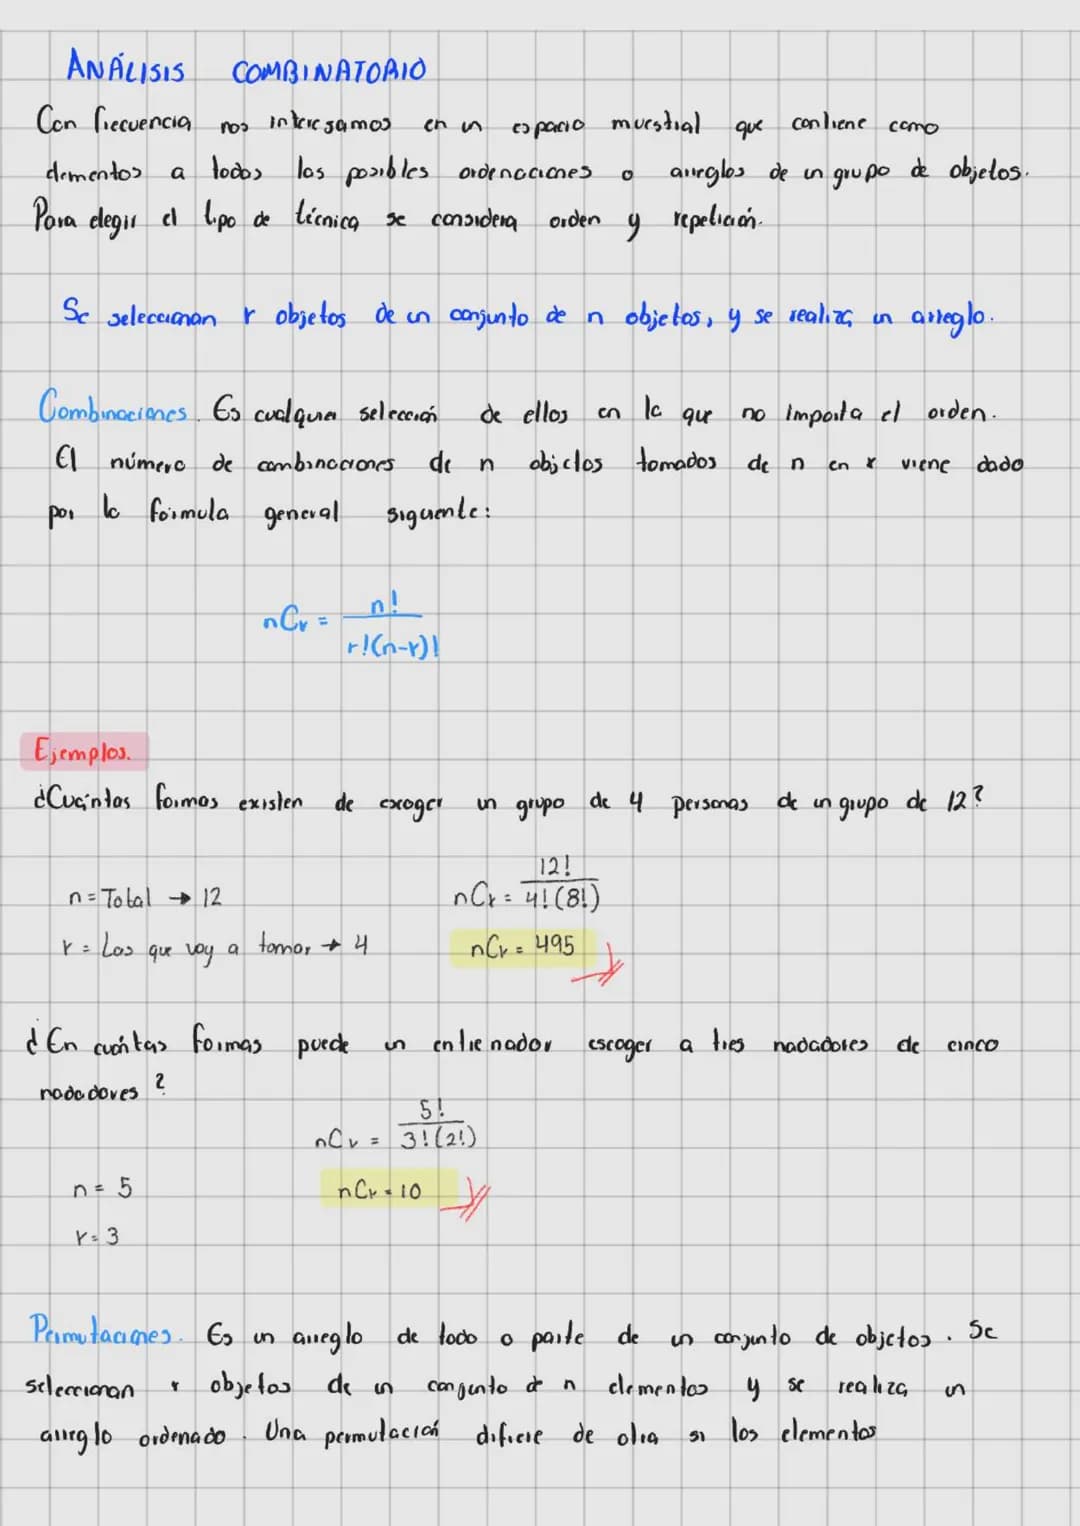 ANÁLISIS COMBINATORIO
Con frecuencia nos interesamos en un espacio muestral que contiene como
elementos a todos las posibles ordenaciones o arreglos de un grupo de objetos.
Para elegir el tipo de técnica se considera orden y repetición.
Se seleccionan r objetos de un conjunto de n objetos, y se realiza un arreglo.
Combinaciones. Es cualquier selección de ellos en la que no importa el orden.
El número de combinaciones de n objetos tomados de n en r viene dado
por la fórmula general siguiente:
nCr = n! / r!(n-r)!
Ejemplos.
¿Cuántas formas existen de escoger un grupo de 4 personas de un grupo de 12?
n = Total → 12
nCr = 12! / 4!(8!)
r = Los que voy a tomar → 4
nCr = 495
¿En cuántas formas puede un entrenador escoger a tres nadadores de cinco
nadadores?
nCr = 5! / 3!(2!)
n = 5
nCr = 10
r = 3
Permutaciones. Es un arreglo de todo o parte de un conjunto de objetos. Se
seleccionan r objetos de un conjunto de n elementos y se realiza un
arreglo ordenado. Una permutación difiere de otra si los elementos